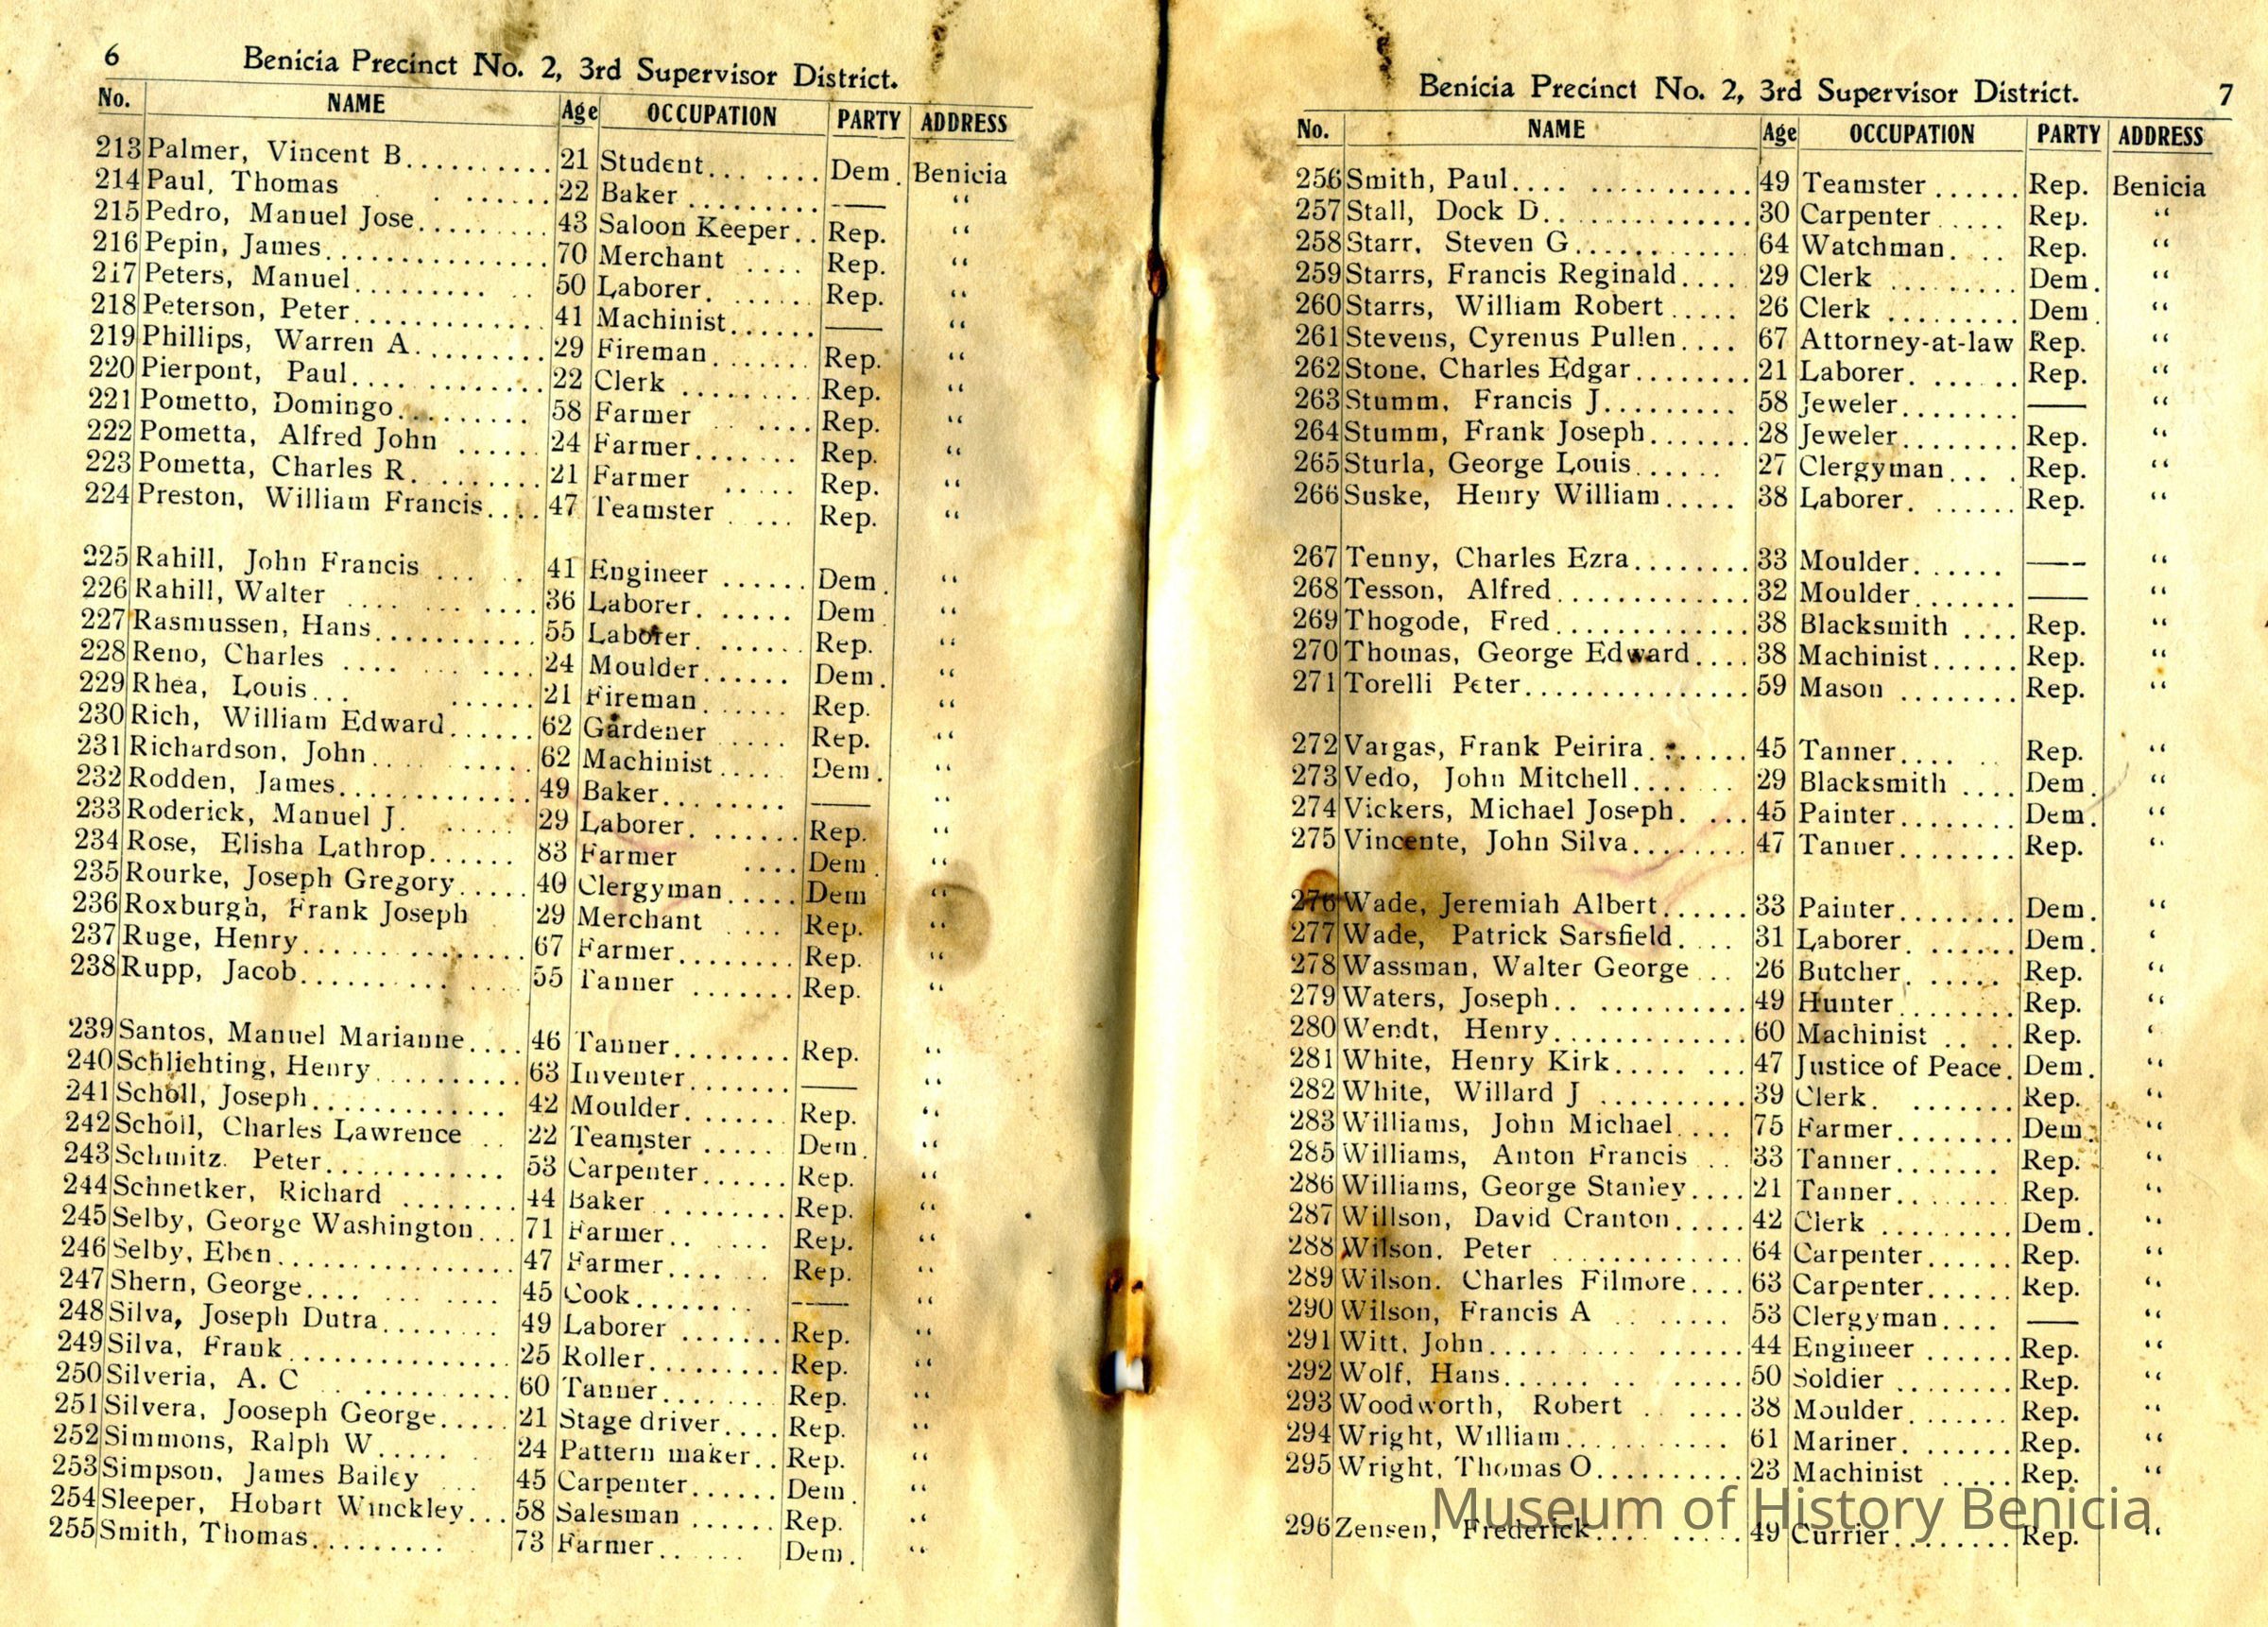 6 Benicia Precinct No. 2, 3rd Supervisor District.
No. NAME Age OCCUPATION PARTY ADDRESS
213 Palmer, Vincent B. 21 Student Dem. Benicia
214 Paul, Thomas 22 Baker —— “
215 Pedro, Manuel Jose 43 Saloon Keeper Rep. “
216 Pepin, James 70 Merchant Rep. “
217 Peters, Manuel 50 Laborer Rep. “
218 Peterson, Peter 41 Machinist —— “
219 Phillips, Warren A 29 Fireman Rep. “
220 Pierpont, Paul 22 Clerk Rep. “
221 Pometto, Domingo 58 Farmer Rep. “
222 Pometta, Alfred John 24 Farmer Rep. “
223 Pometta, Charles R. 21 Farmer Rep. “
224 Preston, William Francis 47 Teamster Rep. “
225 Rahill, John Francis 41 Engineer Dem. “
226 Rahill, Walter 36 Laborer Dem “
227 Rasmussen, Hans 55 Laborer Rep. “
228 Reno, Charles 24 Moulder Dem. “
229 Rhea, Louis 21 Fireman Rep. “
230 Rich, William Edward 62 Gardener Rep. “
231 Richardson, John 62 Machinist Dem. “
232 Rodden, James 49 Baker —— “
233 Roderick, Manuel J. 29 Laborer Rep. “
234 Rose, Elisha Lathrop 83 Farmer Dem. “
235 Rourke, Joseph Gregory 40 Clergyman Dem “
236 Roxburgh, Frank Joseph 29 Merchant Rep. “
237 Ruge, Henry 67 Farmer Rep. “
238 Rupp, Jacob 55 Tanner Rep. “
239 Santos, Manuel Marianne 46 Tanner Rep. “
240 Schlichting, Henry 63 Inventer —— “
241 Scholl, Joseph 42 Moulder Rep. “
242 Scholl, Charles Lawrence 22 Teamster Dem. “
243 Schmitz. Peter 53 Carpenter Rep. “
244 Schnetker, Richard 44 Baker Rep. “
245 Selby, George Washington 71 Farmer Rep. “
246 Selby, Eben 47 Farmer Rep. “
247 Shern, George 45 Cook —— “
248 Silva, Joseph Dutra 49 Laborer Rep. “
249 Silva, Frank 25 Roller Rep. “
250 Silveria, A. C 60 Tanner Rep. “
251 Silvera, Jooseph George 21 Stage driver Rep. “
252 Simmons, Ralph W 24 Pattern maker Rep. “
253 Simpson, James Bailey 45 Carpenter Dem. “
254 Sleeper, Hobart Winckley 58 Salesman Rep. “
255 Smith, Thomas 73 Farmer Dem. “
Benicia Precinct No. 2, 3rd Supervisor District. 7
No. NAME Age OCCUPATION PARTY ADDRESS
256 Smith, Paul 49 Teamster Rep. Benicia
257 Stall, Dock D. 30 Carpenter Rep. “
258 Starr, Steven G 64 Watchman Rep. “
259 Starrs, Francis Reginald 29 Clerk Dem. “
260 Starrs, William Robert 26 Clerk Dem. “
261 Stevens, Cyrenus Pullen 67 Attorney-at-law Rep. “
262 Stone, Charles Edgar 21 Laborer Rep. “
263 Stumm, Francis J 58 Jeweler —— “
264 Stumm, Frank Joseph 28 Jeweler Rep. “
265 Sturla, George Louis 27 Clergyman Rep. “
266 Suske, Henry William 38 Laborer Rep. “
267 Tenny, Charles Ezra 33 Moulder —— “
268 Tesson, Alfred 32 Moulder —— “
269 Thogode, Fred 38 Blacksmith Rep. “
270 Thomas, George Edward 38 Machinist Rep. “
271 Torelli Peter 59 Mason Rep. “
272 Vargas, Frank Peirira 45 Tanner Rep. “
273 Vedo, John Mitchell 29 Blacksmith Dem. “
274 Vickers, Michael Joseph 45 Painter Dem. “
275 Vincente, John Silva 47 Tanner Rep. “
276 Wade, Jeremiah Albert 33 Painter Dem. “
277 Wade, Patrick Sarsfield 31 Laborer Dem. “
278 Wassman, Walter George 26 Butcher Rep. “
279 Waters, Joseph 49 Hunter Rep. “
280 Wendt, Henry 60 Machinist Rep. “
281 White, Henry Kirk 47 Justice of Peace Dem. “
282 White, Willard J 39 Clerk Rep. “
283 Williams, John Michael 75 Farmer Dem. “
285 Williams, Anton Francis 33 Tanner Rep. “
286 Williams, George Stanley 21 Tanner Rep. “
287 Willson, David Cranton 42 Clerk Dem. “
288 Wilson, Peter 64 Carpenter Rep. “
289 Wilson. Charles Filmore 63 Carpenter Rep. “
290 Wilson, Francis A 53 Clergyman —— “
291 Witt, John 44 Engineer Rep. “
292 Wolf, Hans 50 Soldier Rep. “
293 Woodworth, Robert 38 Moulder Rep. “
294 Wright, William 61 Mariner Rep. “
295 Wright, Thomas O 23 Machinist Rep. “
296 Zensen, Frederick 49 Currier Rep. “
Museum of History Benicia